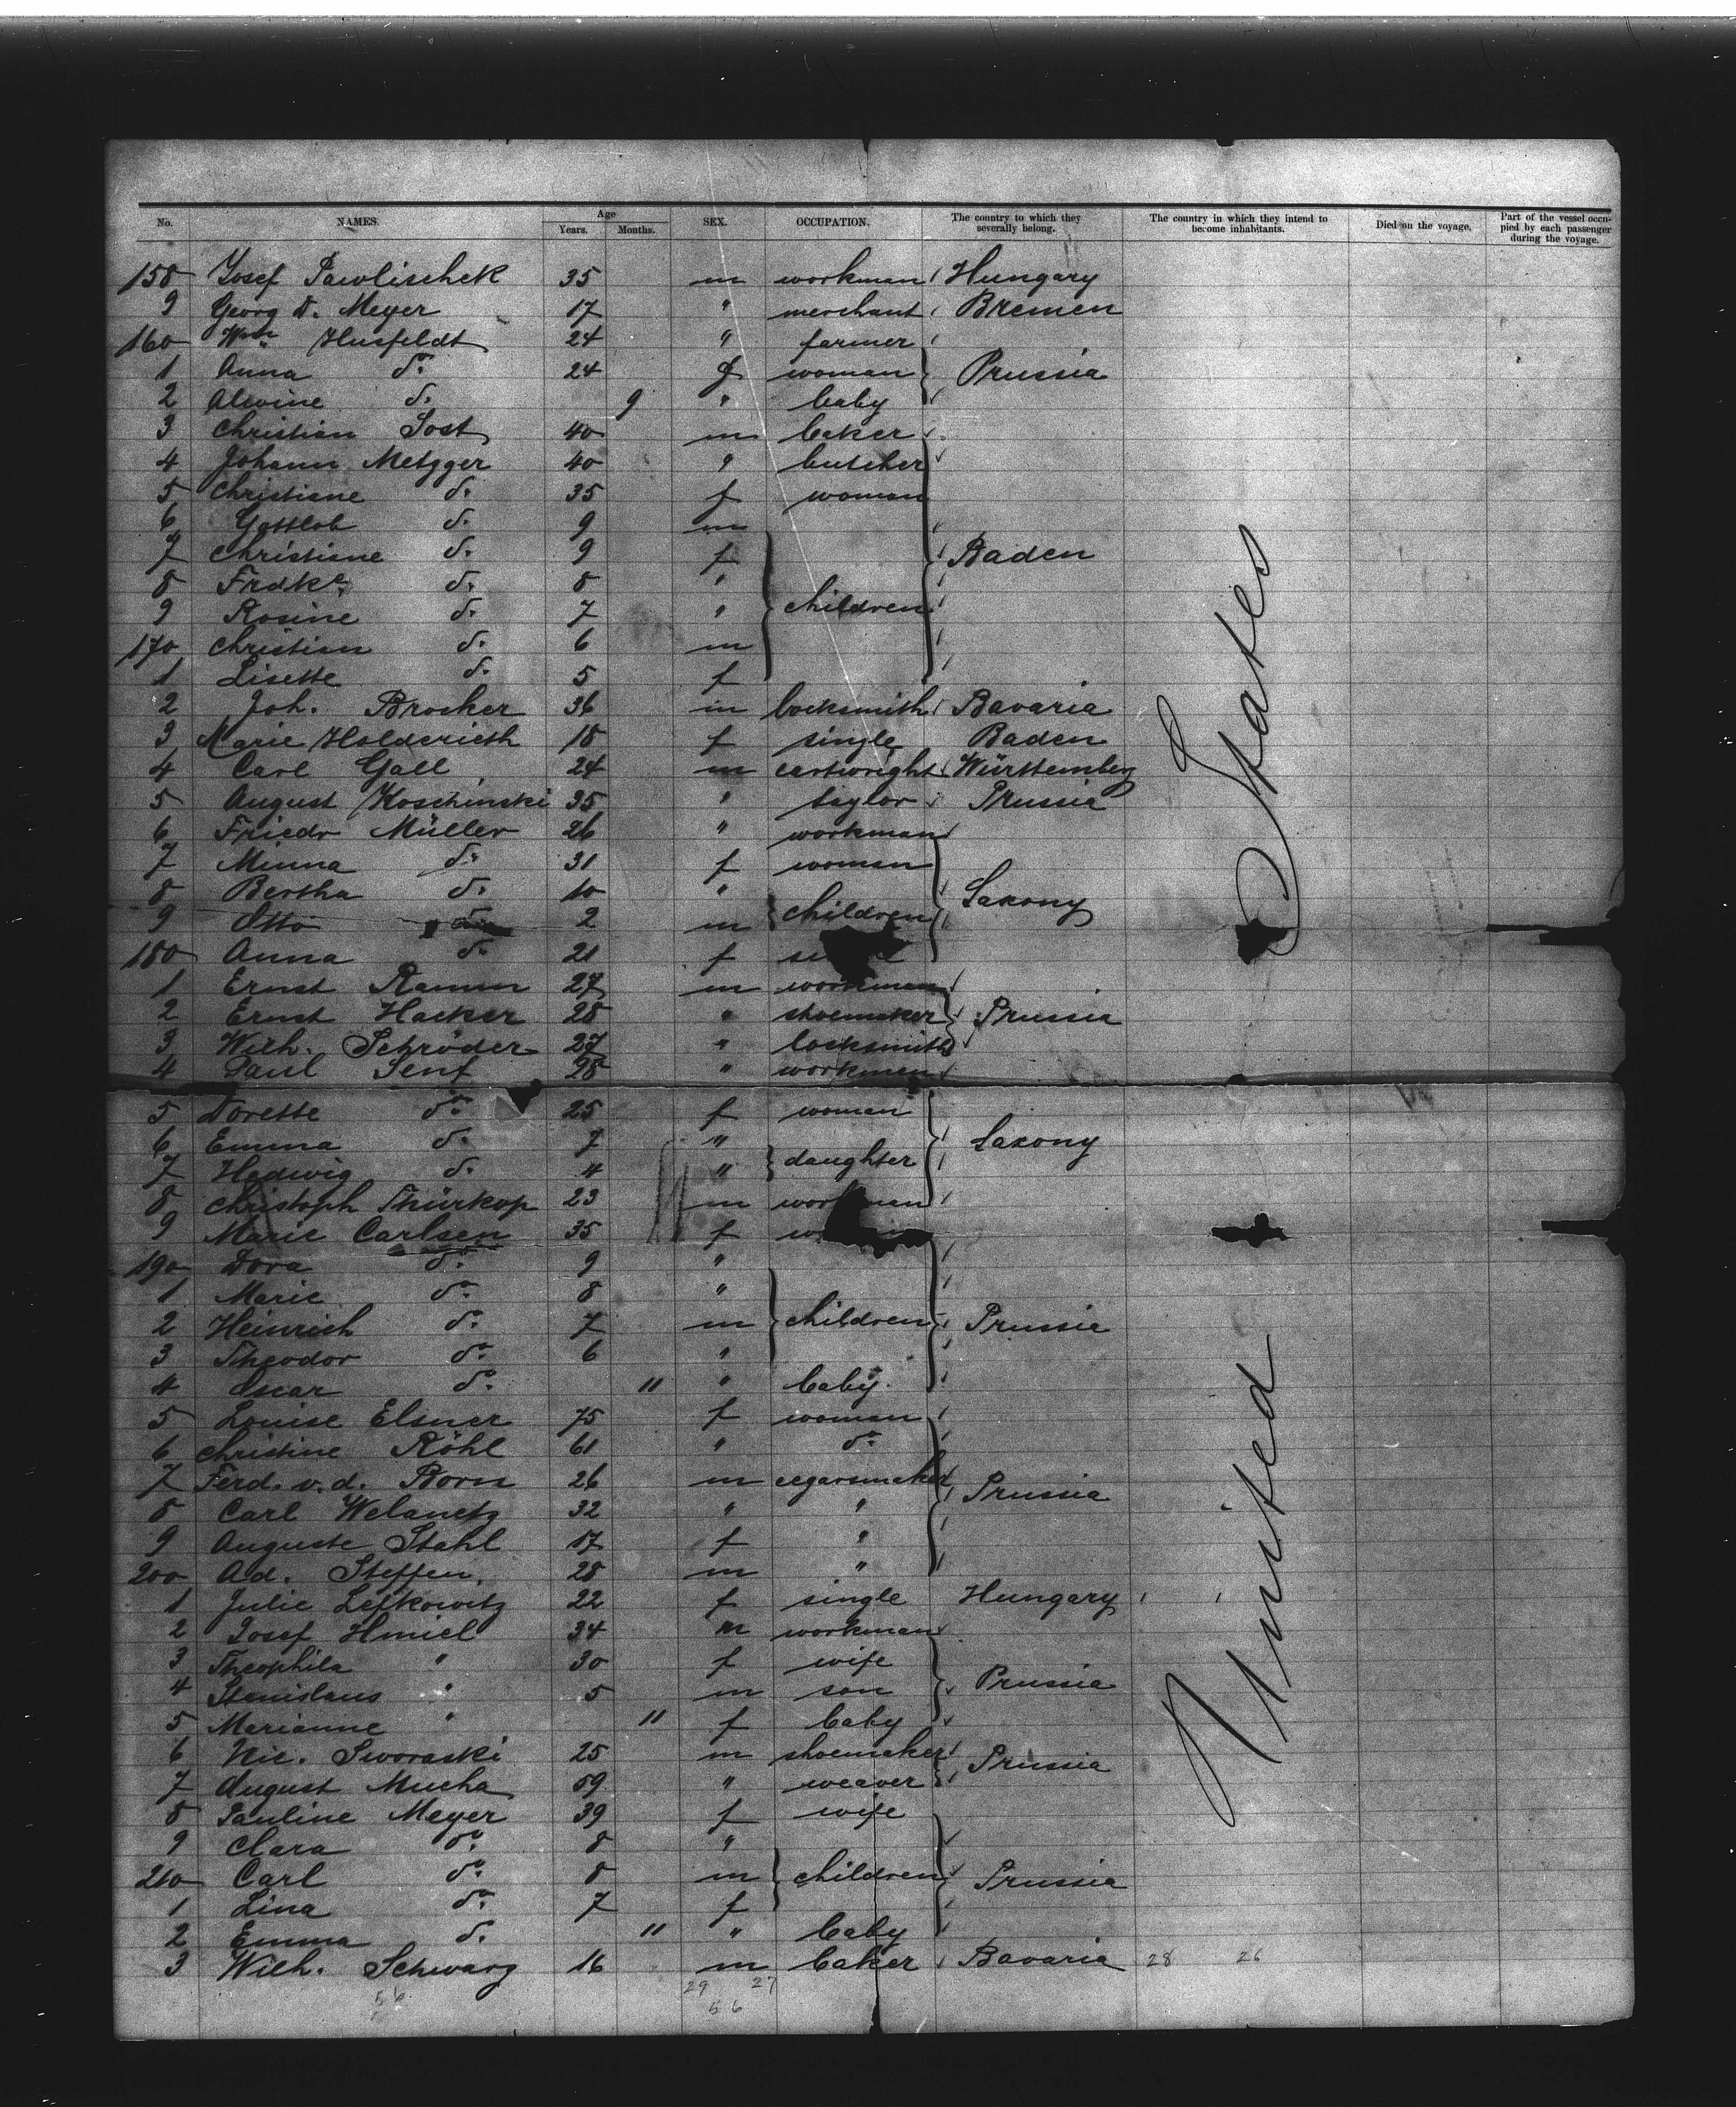 No. NAMES. Age Years. Months. SEX. OCCUPATION. The country to which they severally belong. The country in which they intend to become inhabitants. Died on the voyage. Part of the vessel occupied by each passenger during the voyage.
158 Josef Pawlischek 35 m workman Hungary
9 Georg D. Meyer 17 " merchant Bremen
160 Wm Husfeldt 24 " farmer
1 Anna do 24 f woman Prussia
2 Alwine d. 9 " baby
3 Christian Sost 40 m baker
4 Johann Metzger 40 " butcher
5 Christiane d. 35 f woman
6 Gottlob d. 9 m
7 Christiane d. 9 f Baden
8 Frdke d. 8 "
9 Rosine d. 7 " children
170 Christian d. 6 m
1 Lisette d. 5 f
2 Joh. Brosker 36 m locksmith Bavaria
3 Marie Holderieth 18 f single Baden
4 Carl Gall 24 m cartwright Württemberg
5 August Koschinski 35 " taylor Prussia
6 Friedr Müller 26 " workman
7 Minna d. 31 f woman
8 Bertha d. 10 " Saxony
9 Otto d. 2 m children
180 Anna d. 21 f
1 Ernst Ramm 27 m workman
2 Ernst Hacker 28 " shoemaker Prussia
3 Wilh. Schröder 27 " locksmith
4 Paul Senf 28 " workman
5 Dorette do 25 f woman
6 Emma d. 7 " Saxony
7 Hedwig d. 4 " daughter
8 Christoph Thürkop 23 m workman
9 Marie Carlsen 35 f
190 Dora do 9 "
1 Marie do 8 "
2 Heinrich do 7 m children Prussia
3 Theodor do 6 "
4 Oscar do 11 " baby
5 Louise Elsner 75 f woman
6 Christine Röhl 61 " do
7 Ferd. v. d. Born 26 m cegarsmaker Prussia
8 Carl Welanetz 32 " "
9 Auguste Stahl 17 f "
200 Ad. Steffen 28 m "
1 Julie Lefkowitz 22 f single Hungary
2 Josef Hmiel 34 m workman
3 Theophila " 30 f wife
4 Stanislaus " 5 m son Prussia
5 Marianne " 11 f baby
6 Nic. Sworaski 25 m shoemaker Prussia
7 August Mucha 59 " weaver
8 Pauline Meyer 39 f wife
9 Clara do 8 "
210 Carl do 8 m children Prussia
1 Lina do 7 f
2 Emma d. 11 " baby
3 Wilh. Schwarz 16 m baker Bavaria 28 26
29 27
56 56
United States